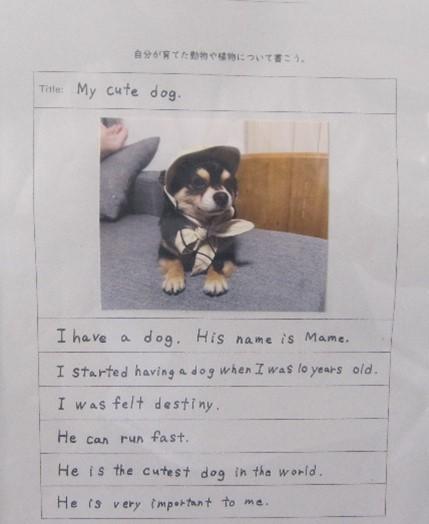 自分が育てた動物や植物について書こう。
Title: My cute dog.
I have a dog. His name is Mame.
I started having a dog when I was 10 years old.
I was felt destiny.
He can run fast.
He is the cutest dog in the world.
He is very important to me.